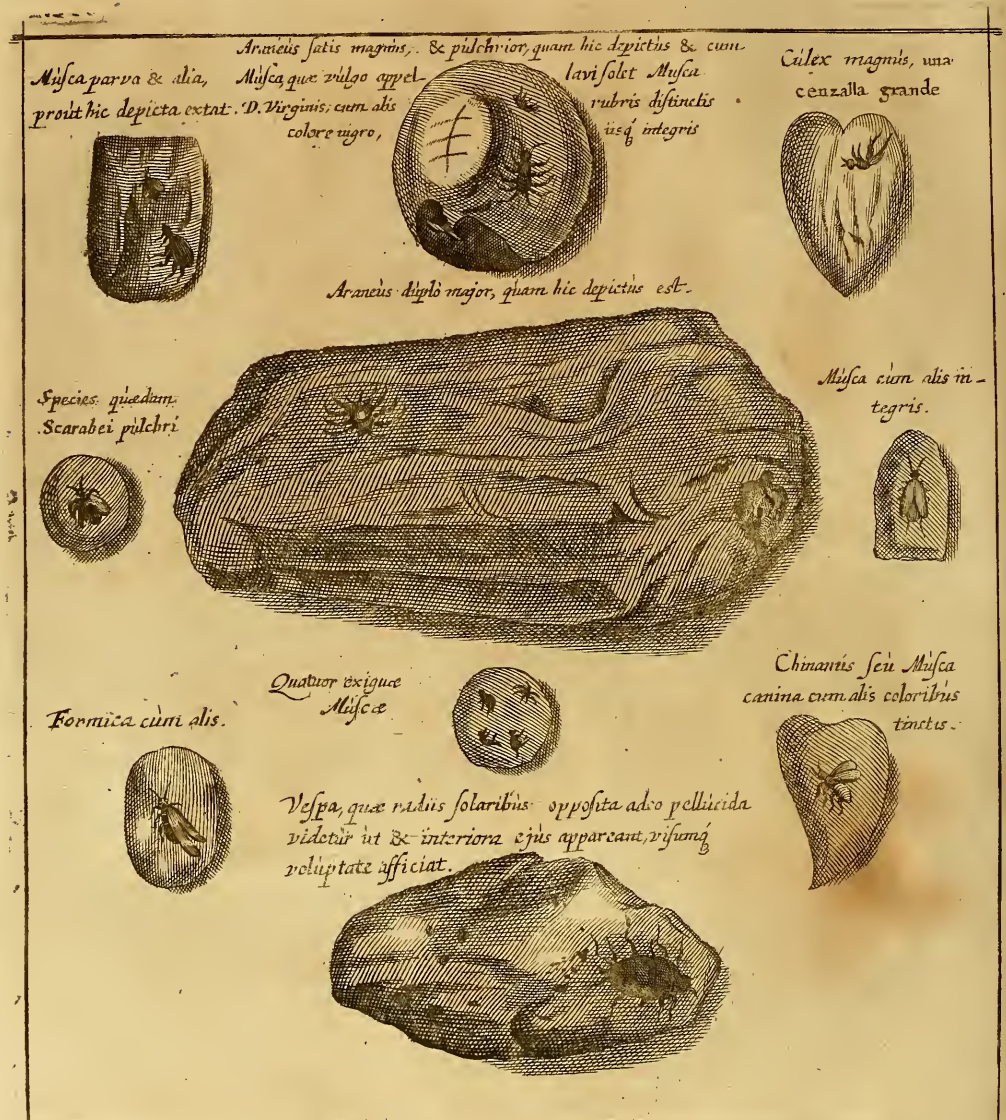 Musca parva & alia,
prout hic depicta extat.
Araneus satis magnus, & pulchrior, quam hic depictus & cum
Musca, quæ vulgo appel-lavi solet Musca
D. Virginis; cum alis rubris distinctis
colore nigro, iisq́ integris
Culex magnus, una
cenzalla grande
Araneus duplò major, quam hic depictus est.
Species quædam
Scarabei pulchri
Musca cum alis in-
tegris.
Quatuor exiguæ
Muscæ
Formica cum alis.
Chinantis seu Musca
canina cum alis coloribus
tinctis.
Vespa, quæ radiis solaribus opposita adeo pellucida
videtur ut & interiora ejus appareant, visumq́
voluptate afficiat.